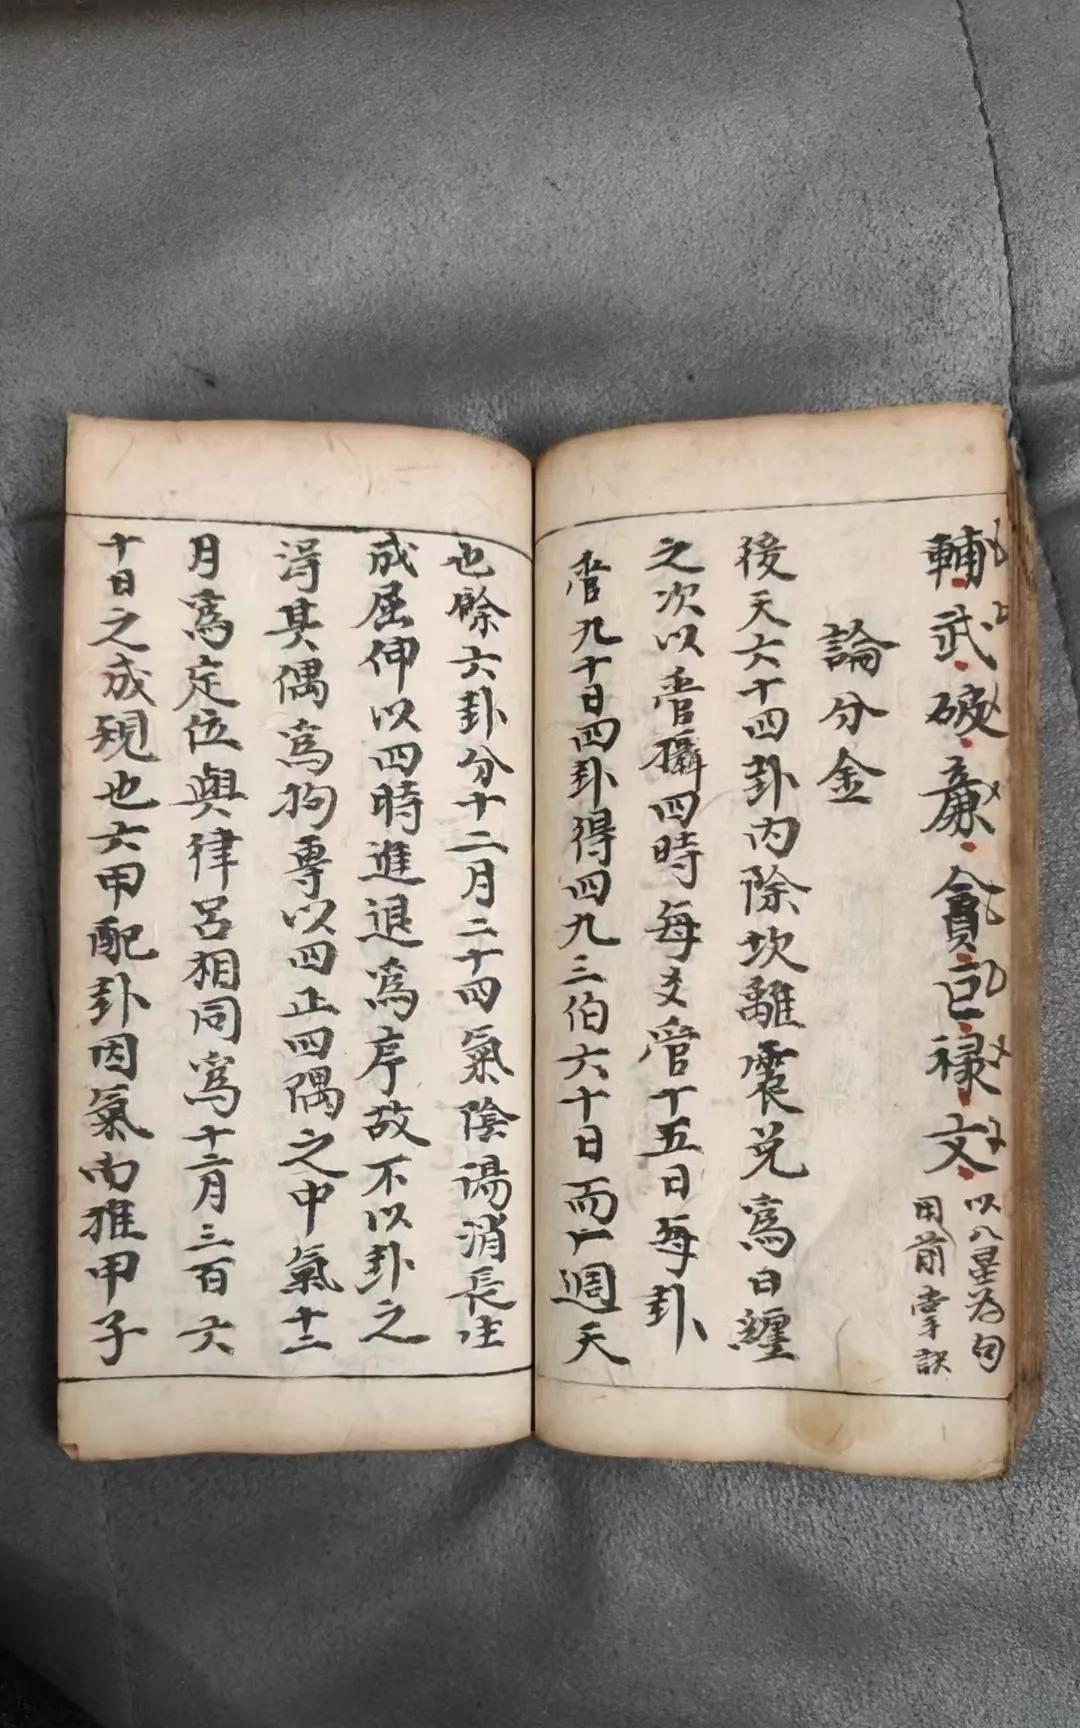 輔武破廉貪巨禄文
以八星为句
用前掌訣
論分金
後天六十四卦内除坎離震兑為日纏
之次以管攝四時每爻管十五日每卦
管九十日四卦得四九三伯六十日而一週天
也餘六卦分十二月二十四氣陰陽消長生
成屈伸以四時進退為序故不以卦之
淂其偶為拘專以四正四隅之中氣十二
月為定位與律吕相同為十二月三百六
十日之成規也六甲配卦因氣而推甲子